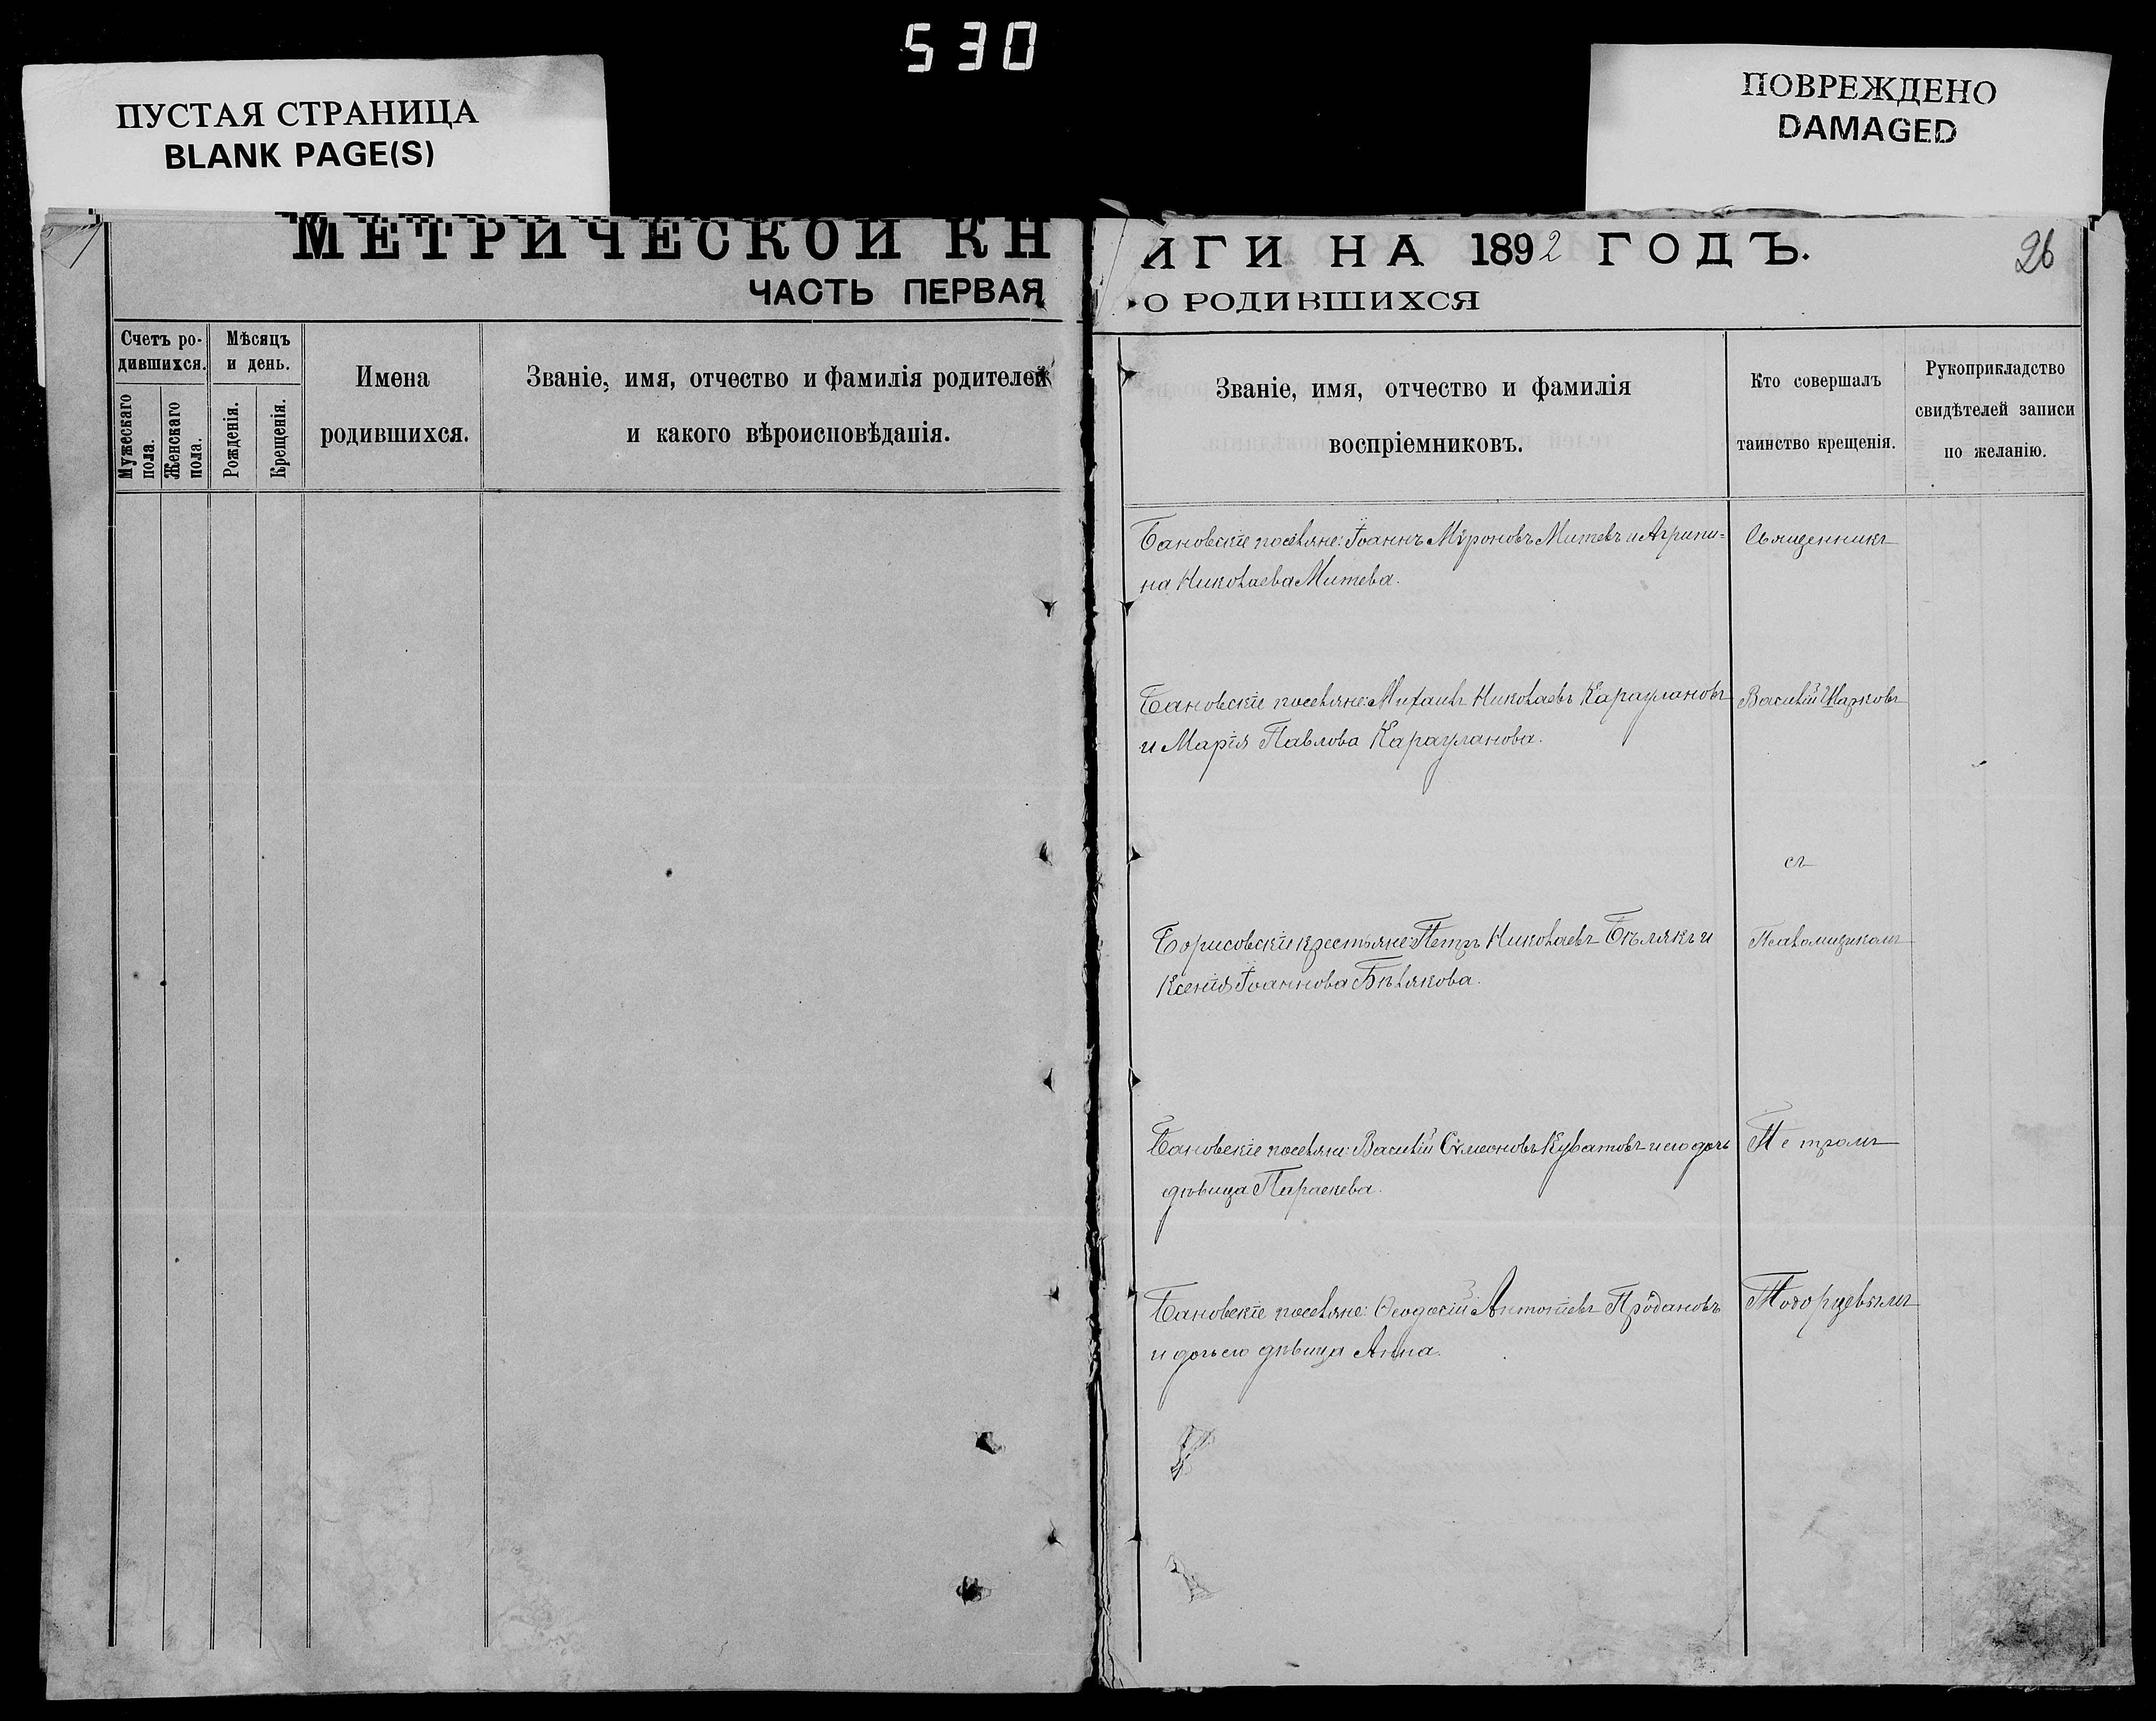 530
ПУСТАЯ СТРАНИЦА
BLANK PAGE(S)
ПОВРЕЖДЕНО
DAMAGED
МЕТРИЧЕСКОЙ КН
ЧАСТЬ ПЕРВАЯ
Счетъ ро-
дившихся.
Мѣсяцъ
и день.
Мужескаго
пола.
Женскаго
пола.
Рожденія.
Крещенія.
Имена
родившихся.
Званіе, имя, отчество и фамилія родителей
и какого вѣроисповѣданія.
ИГИ НА 1892 ГОДЪ.
26
О РОДИВШИХСЯ
Званіе, имя, отчество и фамилія
воспріемниковъ.
Кто совершалъ
таинство крещенія.
Рукоприкладство
свидѣтелей записи
по желанію.
Бановскіе поселяне: Іоаннъ Мѵроновъ Митевъ и Агрипи=
на Николаева Митева.
Священникъ
Бановскіе поселяне: Михаилъ Николаевъ Карауланов
и Марія Павлова Карауланова.
Василій
съ
Борисовскіе крестьяне: Петръ Николаевъ Бѣлякъ и
Ксенія Іоаннова Бѣлякова.
Псаломщикомъ
Бановскіе поселяне: Василій Сѵмеоновъ Куватовъ и его дочь
дѣвица Параскева.
Петромъ
Бановскіе поселяне: Ѳеодосій Антоніевъ Продановъ
и дочь его дѣвица Анна.